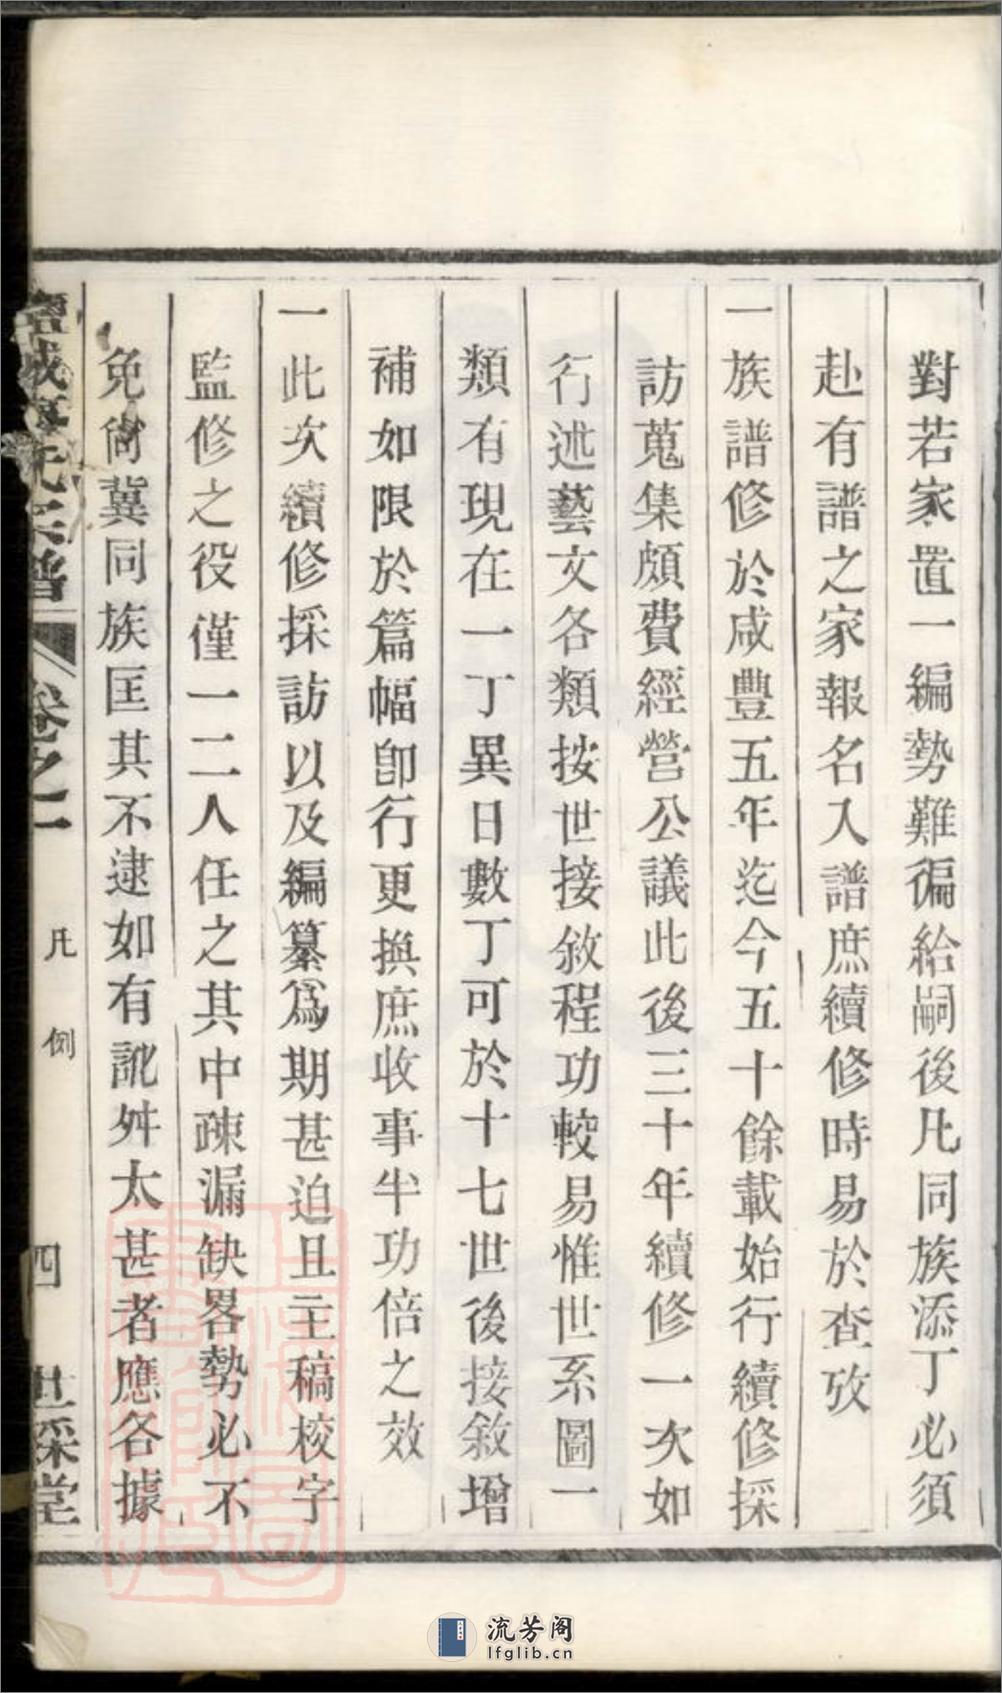 對若家置一編勢難徧給嗣後凡同族添丁必須
赴有譜之家報名入譜庶續修時易於查攷
一族譜修於咸豐五年迄今五十餘載始行續修採
訪蒐集頗費經營公議此後三十年續修一次如
行述藝文各類按世接敘程功較易惟世系圖一
類有現在一丁異日數丁可於十七世後接敘增
補如限於篇幅卽行更換庶收事半功倍之效
一此次續修採訪以及編纂爲期甚迫且主稿校字
監修之役僅一二人任之其中疎漏缺畧勢必不
免尙冀同族匡其不逮如有訛舛太甚者應各據
卷之一
凡例
四
世綵堂
流芳阁
lfglib.cn